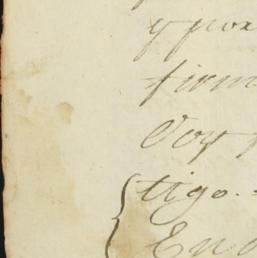 y pux
firm
Doy f
tigo.
En